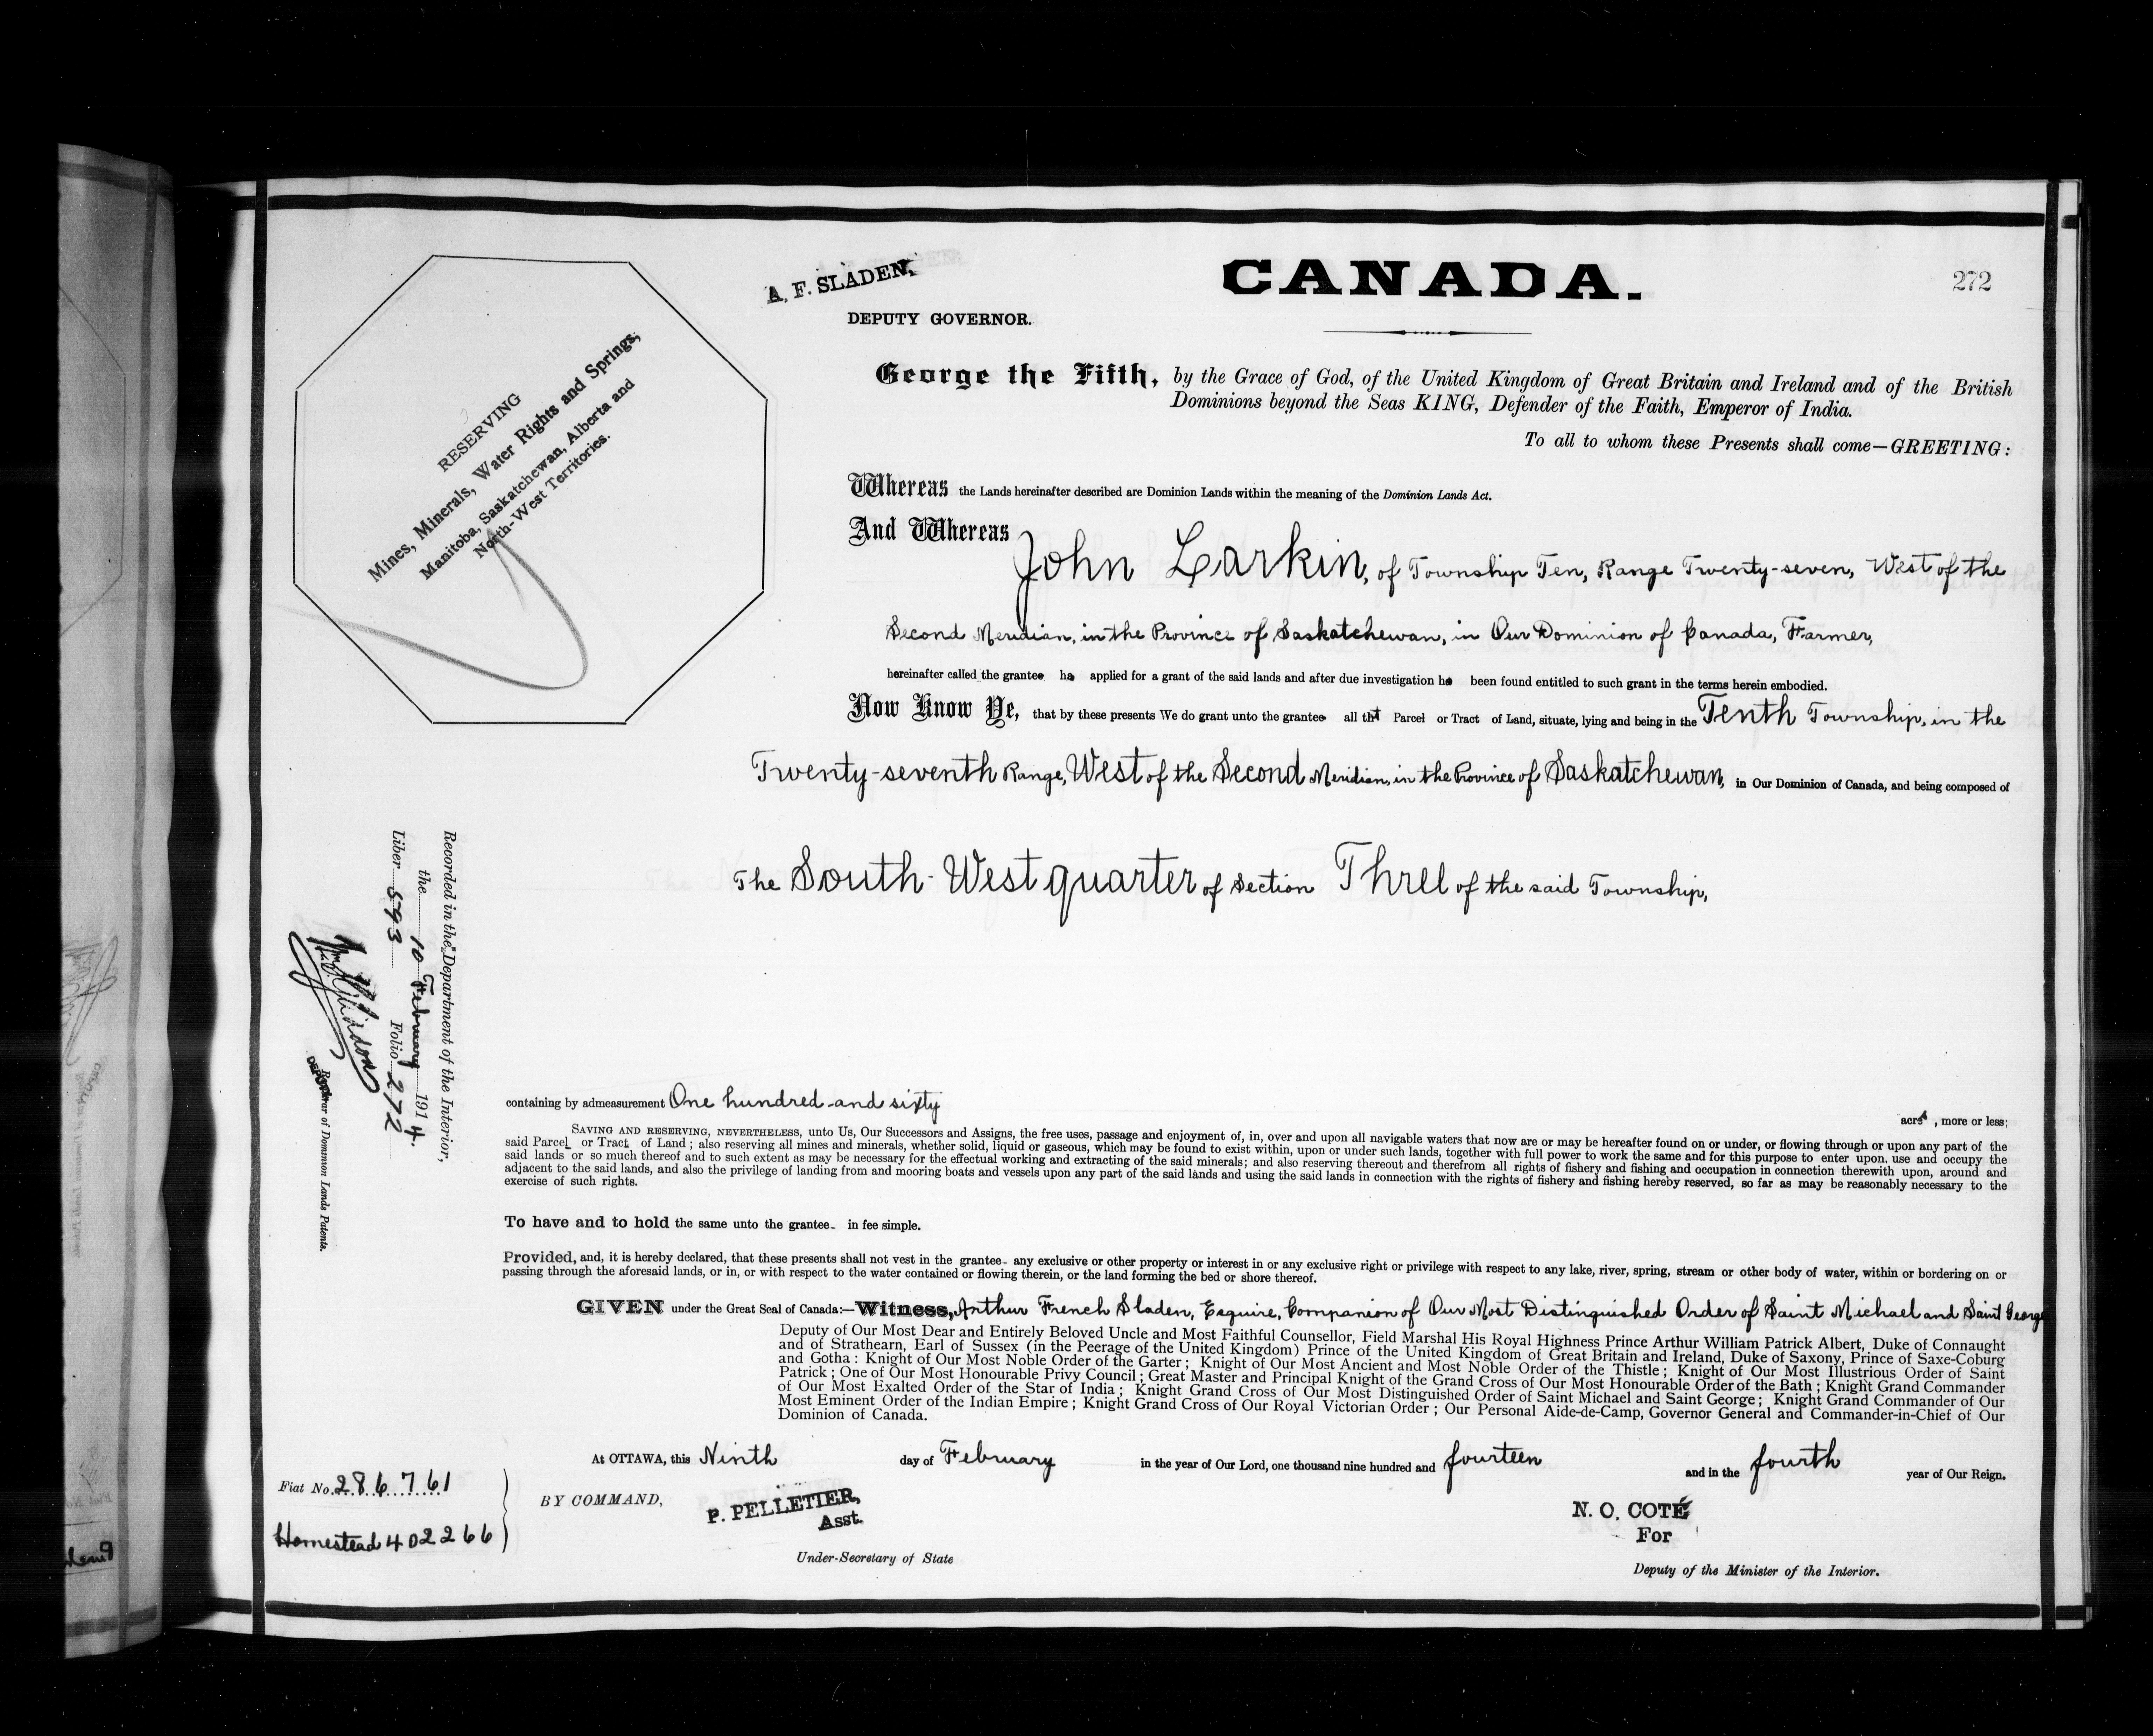 A. F. SLADEN,
DEPUTY GOVERNOR.
CANADA.
272
RESERVING
Mines, Minerals, Water Rights and Springs,
Manitoba, Saskatchewan, Alberta and
North-West Territories.
George the Fifth, by the Grace of God, of the United Kingdom of Great Britain and Ireland and of the British
Dominions beyond the Seas KING, Defender of the Faith, Emperor of India.
To all to whom these Presents shall come—GREETING:
Whereas the Lands hereinafter described are Dominion Lands within the meaning of the Dominion Lands Act.
And Whereas John Larkin, of Township Ten, Range Twenty-seven, West of the
Second Meridian, in the Province of Saskatchewan, in Our Dominion of Canada, Farmer,
hereinafter called the grantee ha applied for a grant of the said lands and after due investigation ha been found entitled to such grant in the terms herein embodied.
Now Know Ye, that by these presents We do grant unto the grantee all that Parcel or Tract of Land, situate, lying and being in the Tenth Township, in the
Twenty-seventh Range, West of the Second Meridian, in the Province of Saskatchewan, in Our Dominion of Canada, and being composed of
The South-West quarter of Section Three of the said Township,
Recorded in the Department of the Interior,
the 10 February 1914.
Liber 593 Folio 272
DEPUTY Registrar of Dominion Lands Patents.
containing by admeasurement One hundred and sixty acres, more or less;
SAVING AND RESERVING, NEVERTHELESS, unto Us, Our Successors and Assigns, the free uses, passage and enjoyment of, in, over and upon all navigable waters that now are or may be hereafter found on or under, or flowing through or upon any part of the
said Parcel or Tract of Land; also reserving all mines and minerals, whether solid, liquid or gaseous, which may be found to exist within, upon or under such lands, together with full power to work the same and for this purpose to enter upon, use and occupy the
said lands or so much thereof and to such extent as may be necessary for the effectual working and extracting of the said minerals; and also reserving thereout and therefrom all rights of fishery and fishing and occupation in connection therewith upon, around and
adjacent to the said lands, and also the privilege of landing from and mooring boats and vessels upon any part of the said lands and using the said lands in connection with the rights of fishery and fishing hereby reserved, so far as may be reasonably necessary to the
exercise of such rights.
To have and to hold the same unto the grantee in fee simple.
Provided, and, it is hereby declared, that these presents shall not vest in the grantee any exclusive or other property or interest in or any exclusive right or privilege with respect to any lake, river, spring, stream or other body of water, within or bordering on or
passing through the aforesaid lands, or in, or with respect to the water contained or flowing therein, or the land forming the bed or shore thereof.
GIVEN under the Great Seal of Canada:—Witness, Arthur French Sladen, Esquire, Companion of Our Most Distinguished Order of Saint Michael and Saint George
Deputy of Our Most Dear and Entirely Beloved Uncle and Most Faithful Counsellor, Field Marshal His Royal Highness Prince Arthur William Patrick Albert, Duke of Connaught
and of Strathearn, Earl of Sussex (in the Peerage of the United Kingdom) Prince of the United Kingdom of Great Britain and Ireland, Duke of Saxony, Prince of Saxe-Coburg
and Gotha: Knight of Our Most Noble Order of the Garter; Knight of Our Most Ancient and Most Noble Order of the Thistle; Knight of Our Most Illustrious Order of Saint
Patrick; One of Our Most Honourable Privy Council; Great Master and Principal Knight of the Grand Cross of Our Most Honourable Order of the Bath; Knight Grand Commander
of Our Most Exalted Order of the Star of India; Knight Grand Cross of Our Most Distinguished Order of Saint Michael and Saint George; Knight Grand Commander of Our
Most Eminent Order of the Indian Empire; Knight Grand Cross of Our Royal Victorian Order; Our Personal Aide-de-Camp, Governor General and Commander-in-Chief of Our
Dominion of Canada.
At OTTAWA, this Ninth day of February in the year of Our Lord, one thousand nine hundred and fourteen and in the fourth year of Our Reign.
Fiat No. 286761
Homestead 402266
BY COMMAND,
P. PELLETIER,
Asst.
Under-Secretary of State
N. O. COTÉ
For
Deputy of the Minister of the Interior.